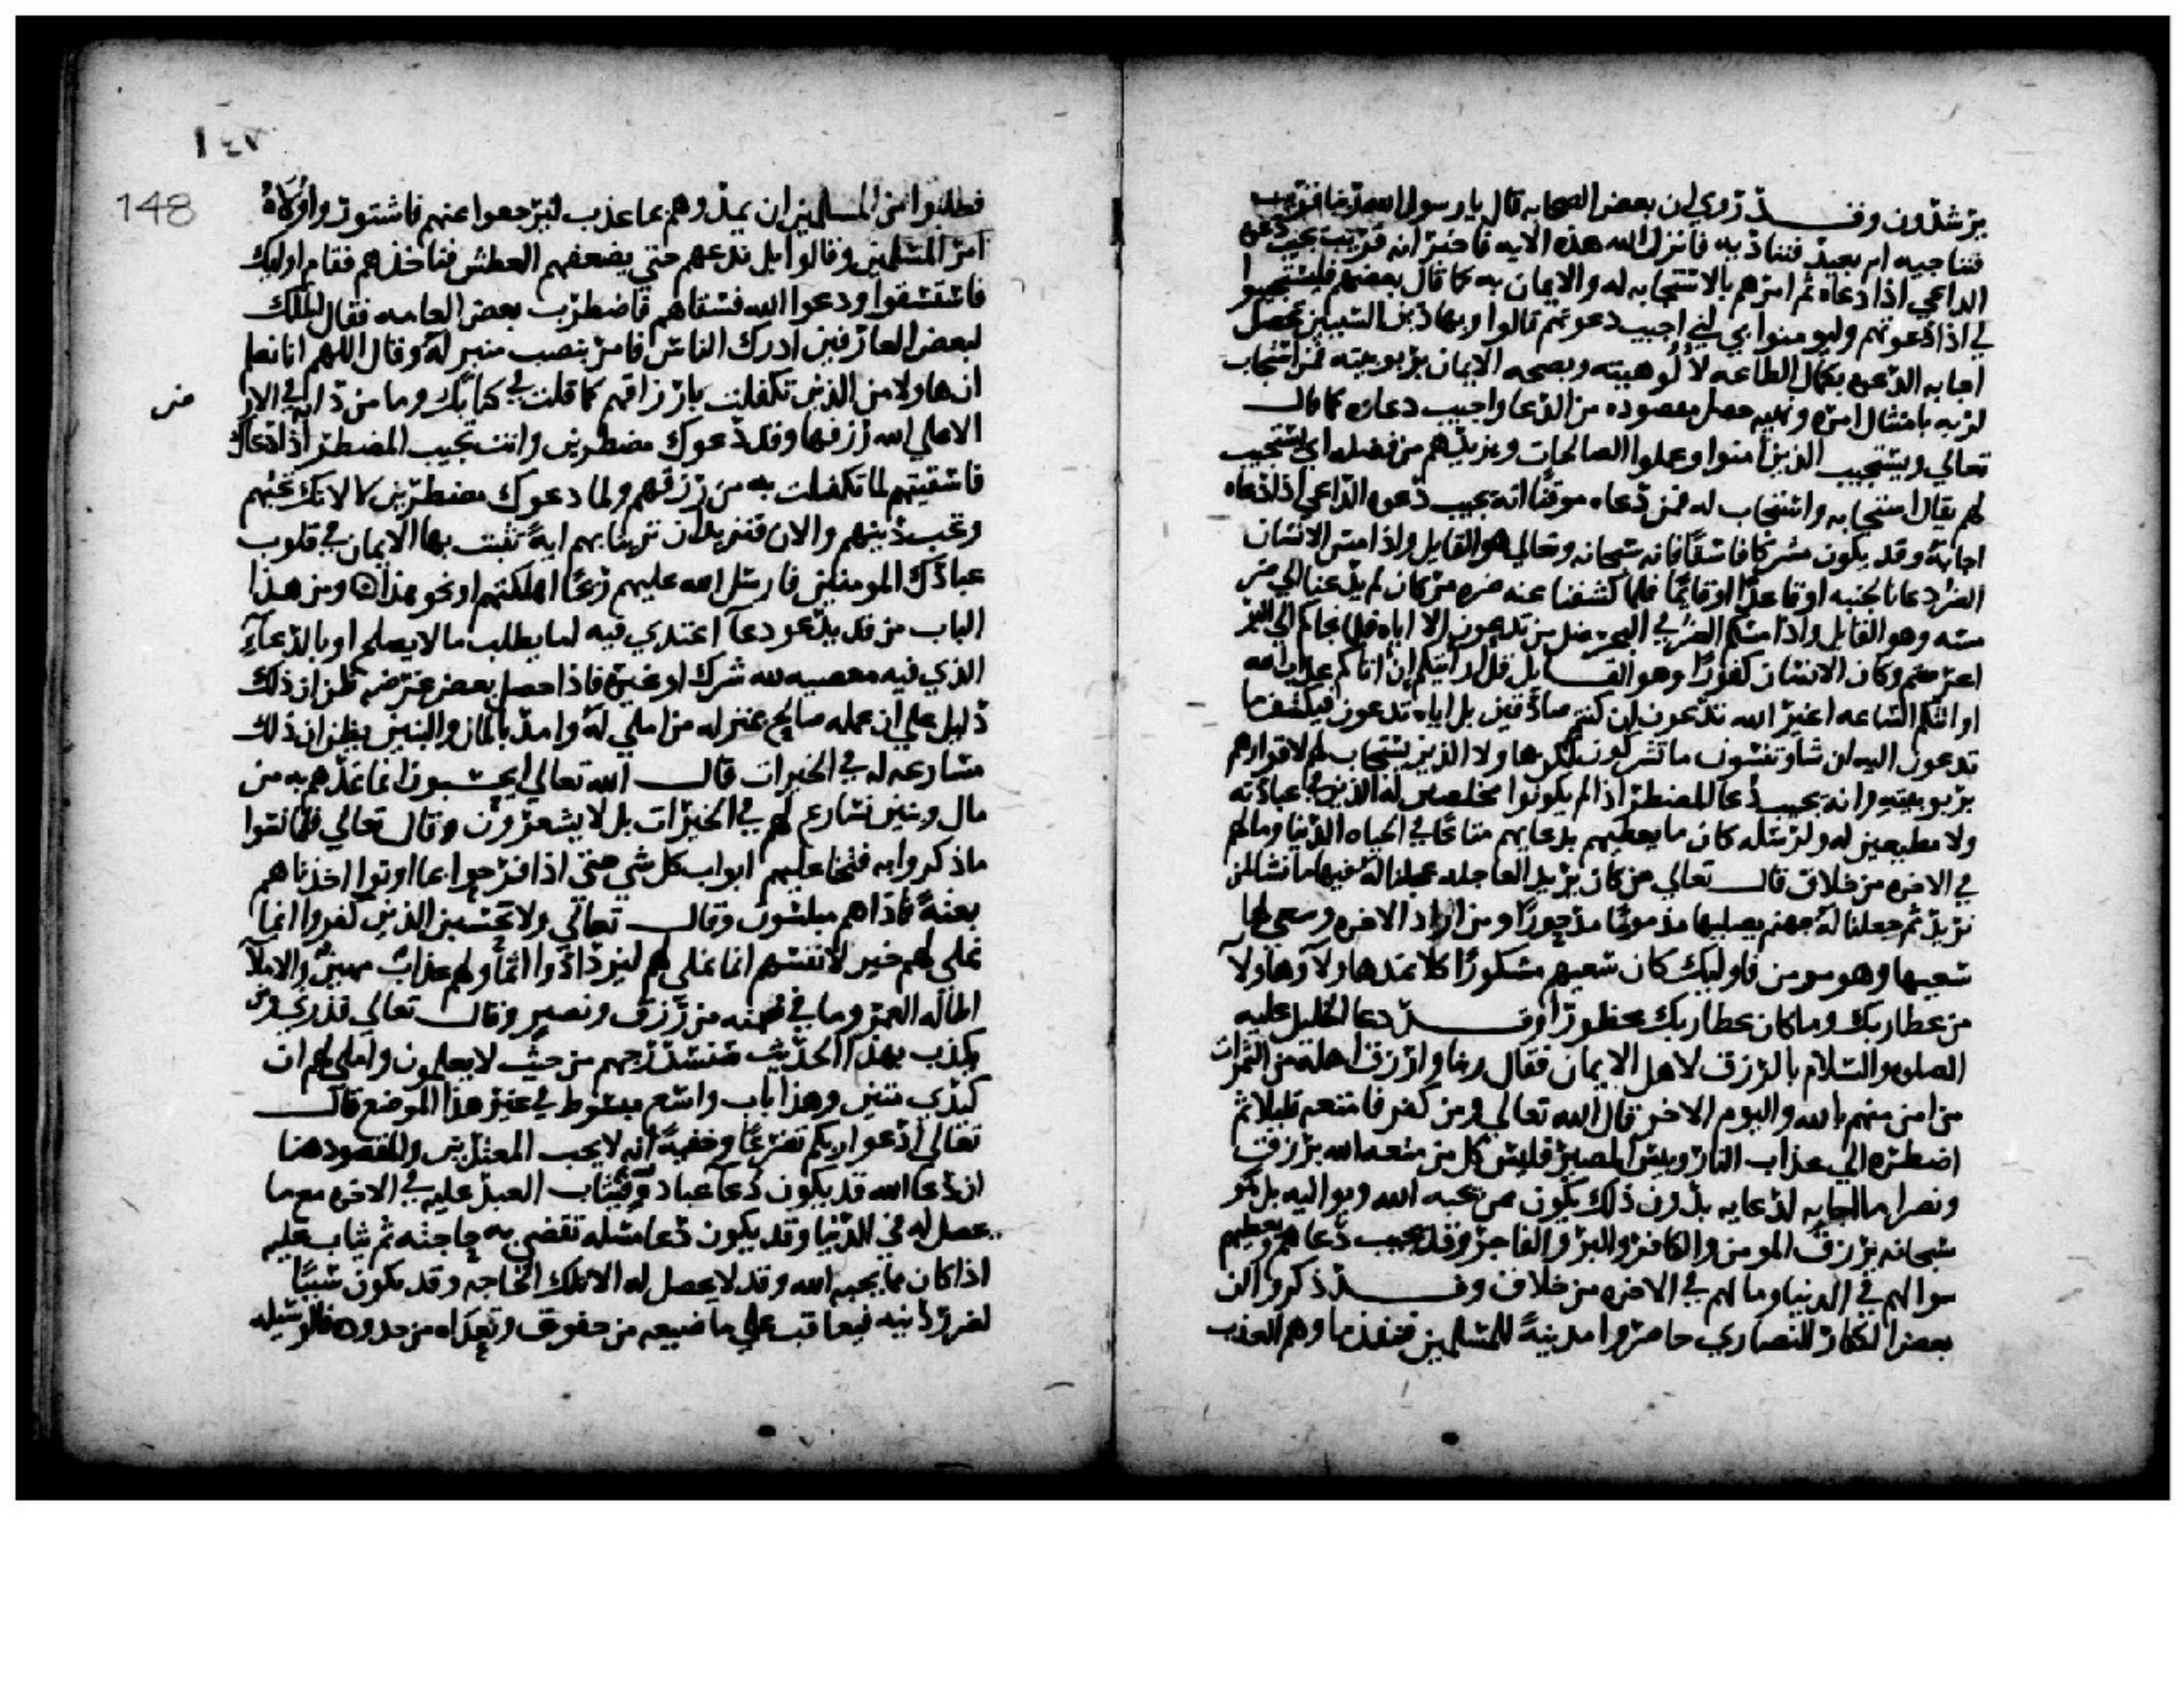 يرشدون وقد روي ان بعض الصحابه قال يا رسول الله ربنا قريب
فنناجيه ام بعيد فنناديه فانزل الله هذه الايه فاخبر انه قريب يجيب دعوه
الداعي اذا دعاه ثم امرهم بالاستجابه له والايمان به كما قال بعضهم فليستجيبوا
لي اذا دعوتهم وليومنوا بي اني اجيب دعوتهم قالوا وبهاذين السببين تحصل
اجابه الدعوه بكمال الطاعه لالوهيته وبصحه الايمان بربوبيته فمن استجاب
لربه بامتثال امره ونهيه حصل مقصوده من الدعا واجيب دعاوه كما قال
تعالي ويستجيب الذين امنوا وعملوا الصالحات ويزيدهم من فضله اي يستجيب
لهم يقال استجابه واستجاب له فمن دعاه موقنا انه يجيب دعوه الداعي اذا دعاه
اجابه وقد يكون مشركا فاسقا فانه سبحانه وتعالي هو القايل واذا مس الانسان
الضر دعانا لجنبه او قاعدا او قايما فلما كشفنا عنه ضره مر كان لم يدعنا الي ضر
مسه وهو القايل واذا مسكم الضر في البحر ضل من تدعون الا اياه فلما نجاكم الي البر
اعرضتم وكان الانسان كفورا وهو القايل قل ارايتكم ان اتاكم عذاب الله
او اتتكم الساعه اغير الله تدعون ان كنتم صادقين بل اياه تدعون فيكشف ما
تدعون اليه ان شا وتنسون ما تشركون لكن هاولا الذين يستجاب لهم لاقرارهم
بربوبيته وانه يجيب دعا المضطر اذا لم يكونوا مخلصين له الدين في عبادته
ولا مطيعين له ولرسله كان ما يعطيهم بدعايهم متاعا في الحياه الدنيا وما لهم
في الاخره من خلاق قال تعالي من كان يريد العاجله عجلنا له فيها ما نشا لمن
نريد ثم جعلنا له جهنم يصليها مذموما مدحورا ومن اراد الاخره وسعي لها
سعيها وهو مومن فاوليك كان سعيهم مشكورا كلا نمد هاولا وهاولا
من عطا ربك وما كان عطا ربك محظورا وقد دعا الخليل عليه
الصلوه والسلام بالرزق لاهل الايمان فقال وارزق اهله من الثمرات
من امن منهم بالله واليوم الاخر قال الله تعالي ومن كفر فامتعه قليلا ثم
اضطره الي عذاب النار وبيس المصير فليس كل من متعه الله برزق
ونصر اما اجابه لدعايه بدون ذلك يكون ممن يحبه الله ويواليه بل هو
سبحانه يرزق المومن والكافر والبر والفاجر وقد يجيب دعاهم ويعطيهم
سوالهم في الدنيا وما لهم في الاخره من خلاق وقد ذكروا ان
بعض الكفار النصاري حاصروا مدينه للمسلمين فنفذ ماوهم العذب
١٤٧
148
فطلبوا من المسلمين ان يمدوهم بما عذب ليرجعوا عنهم فاشتور ولاه
امر المسلمين وقالوا بل ندعهم حتي يضعفهم العطش فناخذهم فقام اوليك
فاستسقوا ودعوا الله فسقاهم فاضطرب بعض العامه فقال الملك
لبعض العارفين ادرك الناس فامر بنصب منبر له وقال اللهم انا نعلم
ان هاولا من الذين تكفلت بارزاقهم كما قلت في كتابك وما من دابه في الار
ض
الا علي الله رزقها وقد دعوك مضطرين وانت تجيب المضطر اذا دعاك
فاسقيتهم لما تكفلت به من رزقهم ولما دعوك مضطرين لا لانك تحبهم
وتحب دينهم والان فنريد ان ترينا بهم ايه تثبت بها الايمان في قلوب
عبادك المومنين فارسل الله عليهم ريحا اهلكتهم او نحو هذا ومن هذا
الباب من قد يدعو دعا اعتدي فيه لما يطلب ما لا يصلح او بالدعا
الذي فيه معصيه لله شرك او غيره فاذا حصل بعض غرضه ظن ان ذلك
دليل علي ان عمله صالح بمنزله من املي له وامد بالمال والبنين يظن ان ذلك
مسارعه له في الخيرات قال الله تعالي ايحسبون انما نمدهم به من
مال وبنين نسارع لهم في الخيرات بل لا يشعرون وقال تعالي فلما نسوا
ما ذكروا به فتحنا عليهم ابواب كل شي حتي اذا فرحوا بما اوتوا اخذناهم
بغته فاذا هم مبلسون وقال تعالي ولا تحسبن الذين كفروا انما
نملي لهم خير لانفسهم انما نملي لهم ليزدادوا اثما ولهم عذاب مهين والاملا
اطاله العمر وما في ضمنه من رزق ونصر وقال تعالي فذرني ومن
يكذب بهذا الحديث سنستدرجهم من حيث لا يعلمون واملي لهم ان
كيدي متين وهذا باب واسع مبسوط في غير هذا الموضع قال
تعالي ادعوا ربكم تضرعا وخفيه انه لا يحب المعتدين والمقصود هنا
ان دعا الله قد يكون دعا عباده فيثاب العبد عليه في الاخره مع ما
يحصل له في الدنيا وقد يكون دعا مسله تقضي به حاجته ثم يثاب عليه
اذا كان مما يحبه الله وقد لا يحصل له الا تلك الحاجه وقد يكون سببا
لضرر دينه فيعاقب علي ما ضيعه من حقوق وتعداه من حدوده فالوسيله